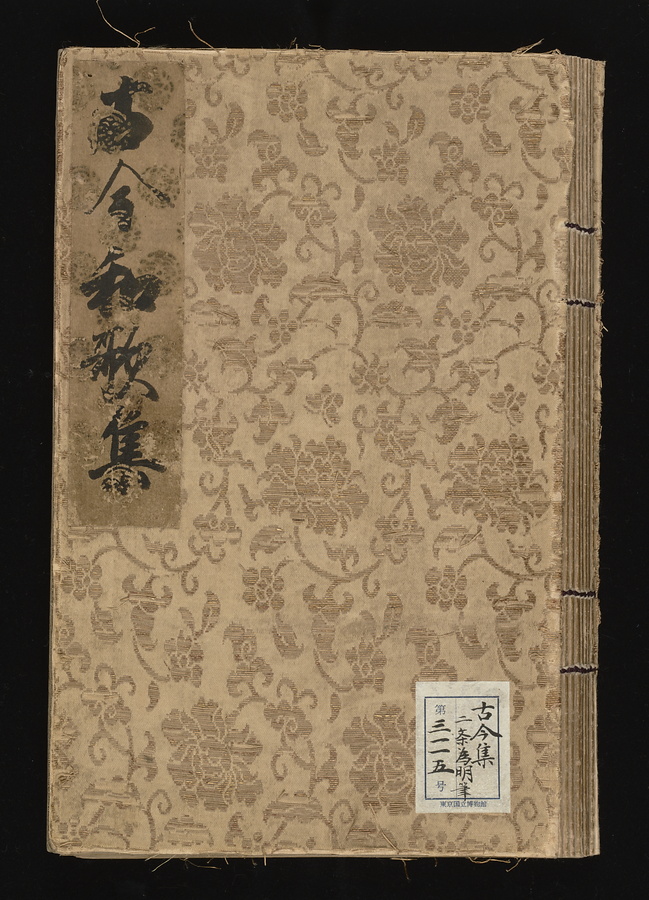 古今和歌集
古今集
二条為明筆
第三一一五号
東京国立博物館